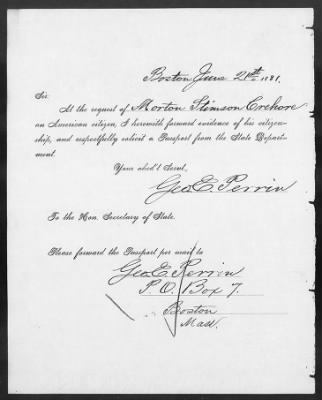 Boston June 21st 1881.
Sir.
At the request of Morton Stimson Crehore
an American citizen, I herewith forward evidence of his citizen-
ship, and respectfully solicit a Passport from the State Depart-
ment.
Your obed't Servt.
Geo. E. Perrin
To the Hon. Secretary of State.
Please forward the Passport per mail to
Geo. E. Perrin
P. O. Box 7.
Boston
Mass.